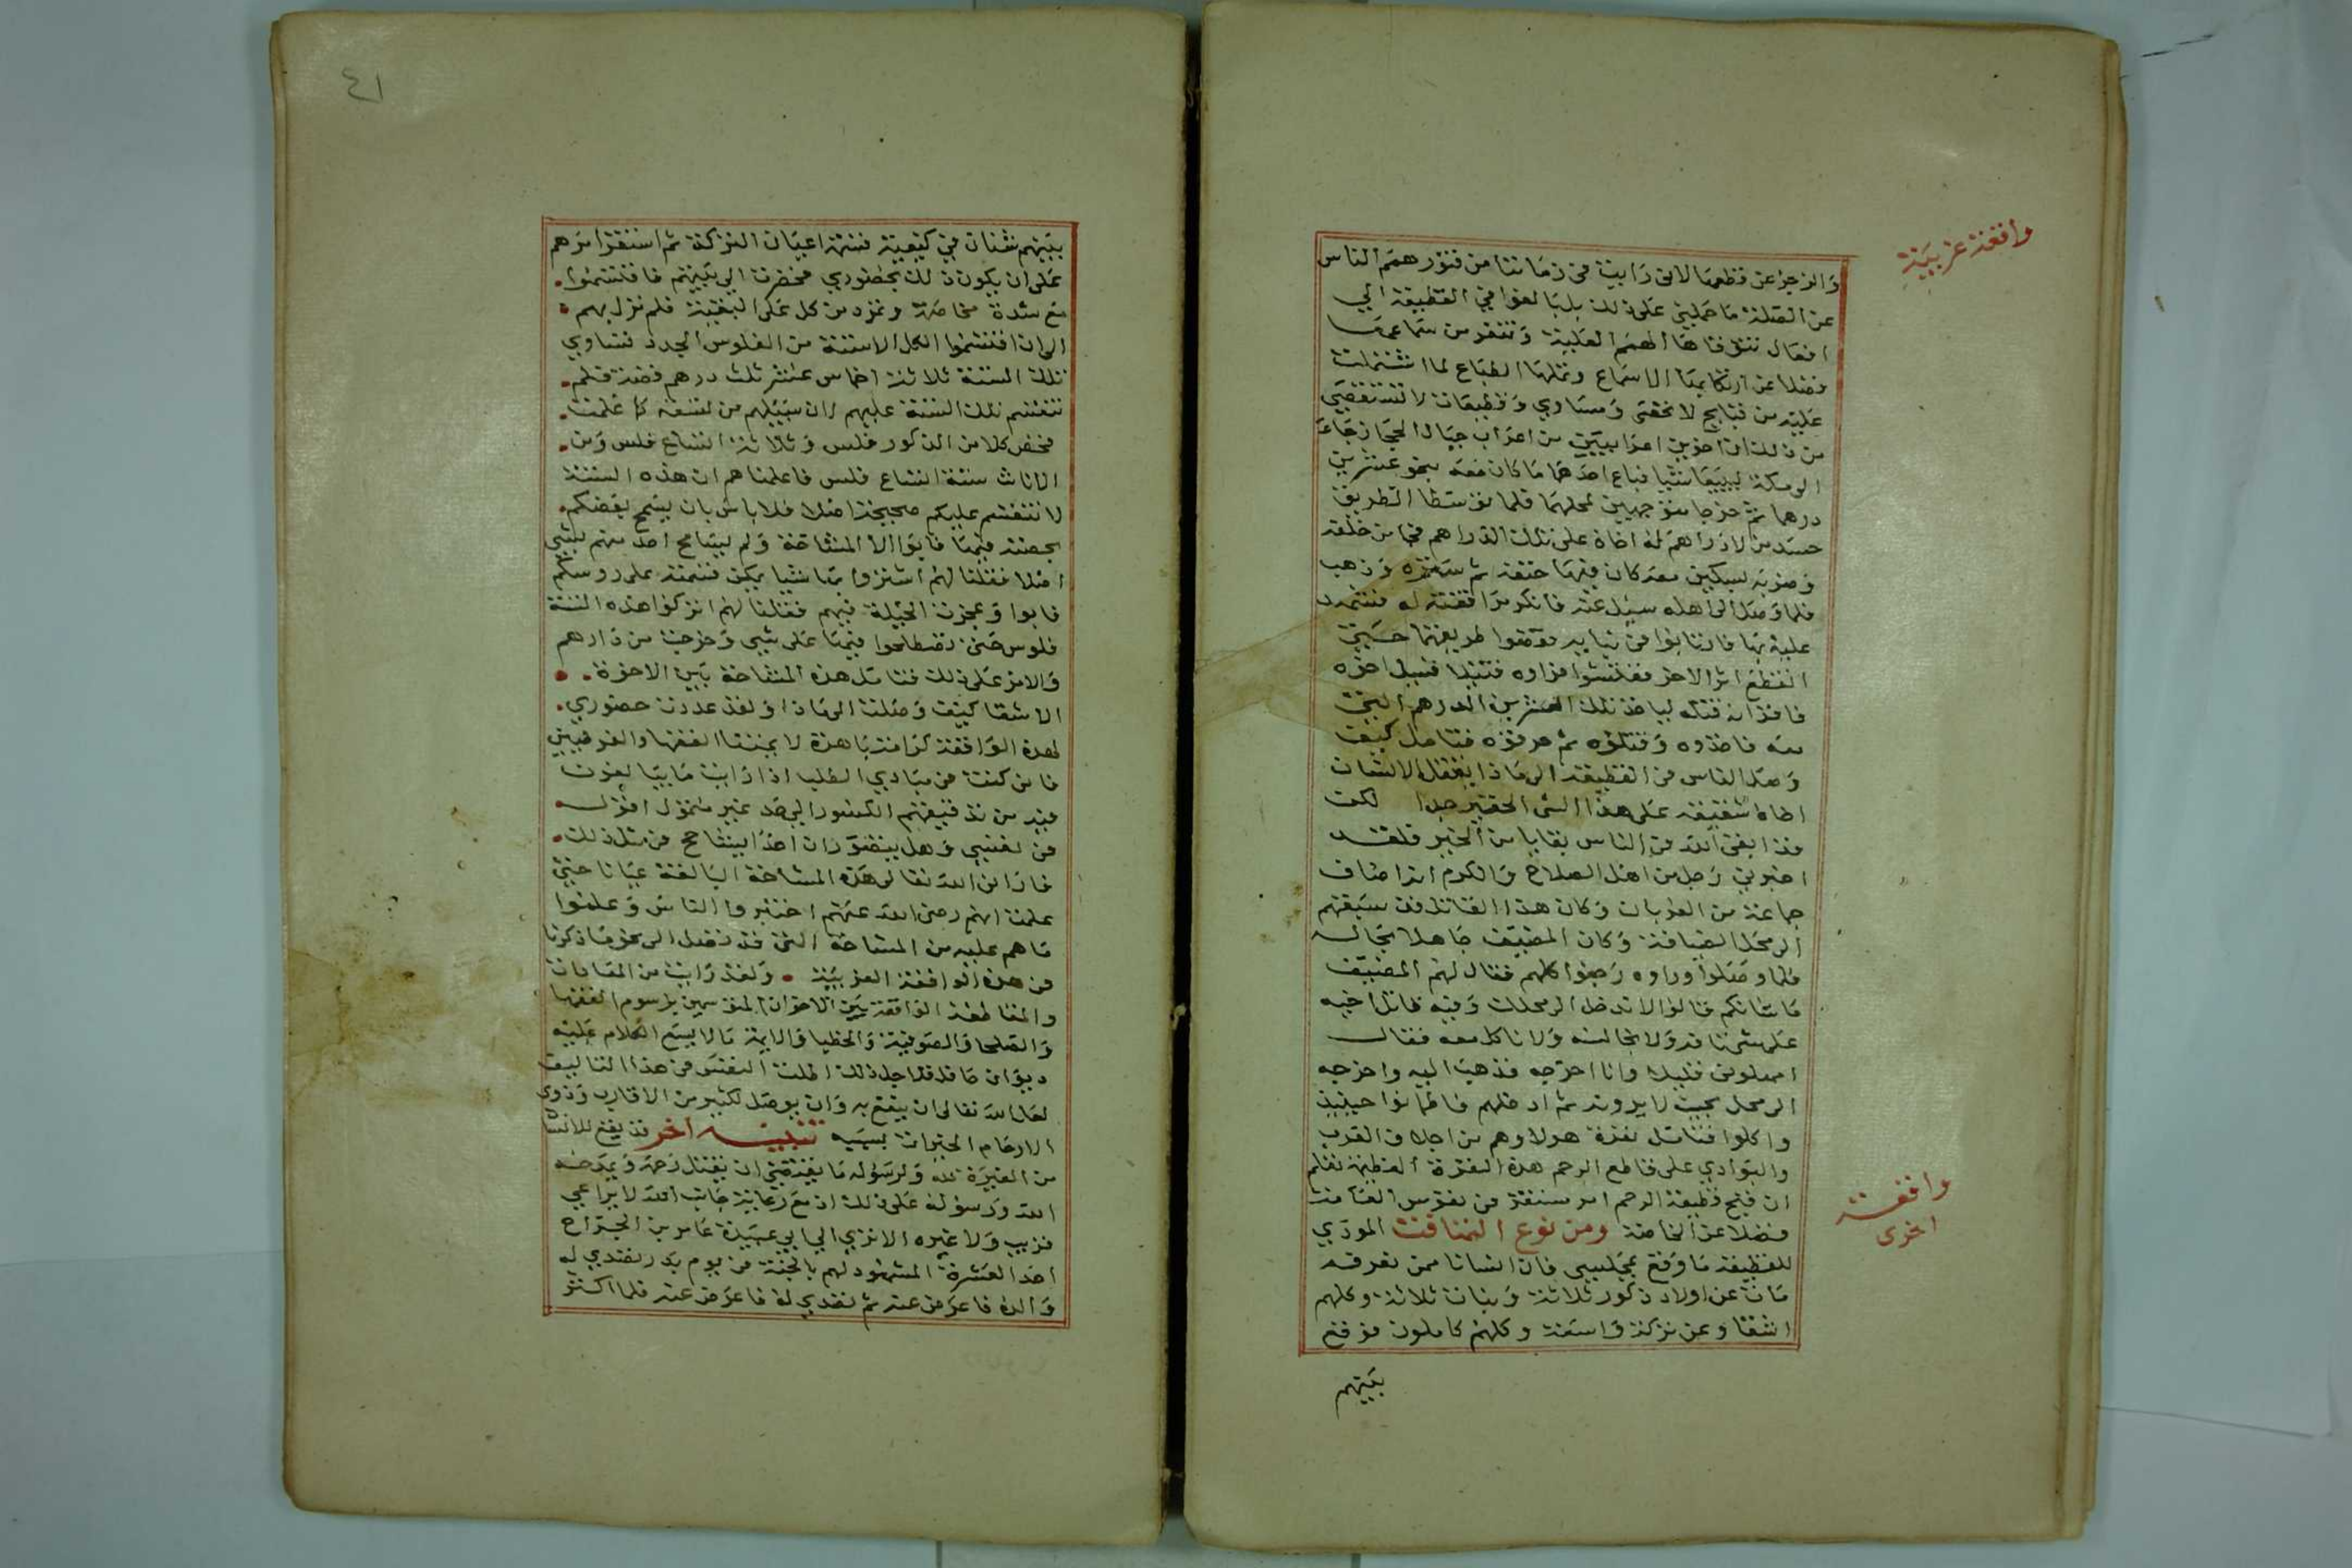 واقعة غريبة
والزجر عن قطعها لاني رايت في زماننا من فتور همم الناس
عن الصلة ما حملني على ذلك بل بالغوا في القطيعة الي
افعال تتوقاها الهمم العلية وتنفر من سماعها
فضلا عن ارتكابها الاسماع وتملها الطباع لما اشتملت
عليه من قبايح لا تخفى ومساوي وقطيعات لا تستقصي
من ذلك ان اخوين اعرابيين من اعراب جبال الحجاز جاءا
الى مكة ليبيعا شيا فباع احدهما ما كان معه بنحو عشرين
درهما ثم خرجا متوجهين لمحلهما فلما توسطا الطريق
حسد من لا دراهم له اخاه على تلك الدراهم فجا من خلفه
وضربه بسكين معه كان فيها حتفه ثم ستره وذهب
فلما وصل الى اهله سيل عنه فانكر مرافقته له فشهد
عليه بها فارتابوا في ثيابه فقصوا طريقهما حتى
انقطع اثر الاخر ففتشوا فراوه قتيلا فسيل اخوه
فاقر انه قتله لياخذ تلك العشرين الدرهم التي
معه فاخذوه وقتلوه ثم حرقوه فتامل كيف
وصل الناس في القطيعة الى ما ذا يقتل الانسان
اخاه شقيقه على هذا الشي الحقير جدا لكن
قد ابقى الله في الناس بقايا من الخير فلقد
اخبرني رجل من اهل الصلاح والكرم انه اضاف
جماعة من العربان وكان هذا القاتل قد سبقهم
الى محل الضيافة وكان المضيف جاهلا بحاله
فلما وصلوا وراوه رجعوا كلهم فقال لهم المضيف
ما شانكم قالوا لا ندخل الى محلك وفيه قاتل اخيه
على شي تافه ولا نجالسه ولا ناكل معه فقال
امهلوني قليلا وانا اخرجه فذهب اليه واخرجه
الى محل بحيث لا يرونه ثم ادخلهم فاطمانوا حينيذ
واكلوا فتامل نفرة هولا وهم من اجلاف العرب
والبوادي على قاطع الرحم هذه النفرة العظيمة تعلم
ان قبح قطيعة الرحم امر مستقر في نفوس العامة
فضلا عن الخاصة ومن نوع التماقت المودي
للقطيعة ما وقع بمجلسي فان انسانا ممن نعرفه
مات عن اولاد ذكور ثلاثة وبنات ثلاثة وكلهم
اشقا وعن تركة واسعة وكلهم كاملون فوقع
واقعة
اخرى
بينهم
٤١
بينهم شنان في كيفية قسمة اعيان التركة ثم استقر امرهم
على ان يكون ذلك بحضوري فحضرت الى بيتهم فاقتسموا
مع شدة مخاصمة وتمرد من كل على البقية فلم نزل بهم
الى ان اقتسموا الكل الا ستة من الفلوس الجدد تساوي
تلك الستة ثلاثة اخماس عشر ثلث درهم فضة فلم
تنقسم تلك الستة عليهم لان سبيلهم من تسعة كما علمت
فخص كلا من الذكور فلس وثلاثة اتساع فلس ومن
الاناث ستة اتساع فلس فاعلمناهم ان هذه الستة
لا تنقسم عليكم صحيحة اصلا فلا باس بان يسمح بعضكم
بحصته فيها فابوا الا المشاححة ولم يسامح احد منهم بشي
اصلا فقلنا لهم اشتروا بها شيا يمكن قسمته على روسكم
فابوا وعجزت الحيلة فيهم فقلنا لهم اتركوا هذه الستة
فلوس حتى تصطلحوا فيها على شي وخرجت من دارهم
والامر على ذلك فتامل هذه المشاححة بين الاخوة
الاشقا كيف وصلت الى ماذا ولقد عددت حضوري
لهذه الواقعة كرامة باهرة لايمتنا الفقها والفرضيين
فاني كنت في مبادي الطلب اذا رايت ما يبالغون
فيه من تدقيقهم الكسور الي حد غير متمول اقول
في نفسي وهل يتصور ان احدا يشاحح في مثل ذلك
فاراني الله تعالى هذه المشاححة البالغة عيانا حتى
علمت انهم رضى الله عنهم اختبروا الناس وعلموا
ما هم عليه من المشاححة التي قد تصل الى نحو ما ذكرنا
في هذه الواقعة الغريبة ولقد رايت من المقابات
والمقاطعة الواقعة بين الاخوان المتوسمين برسوم الفقها
والصلحا والصوفية والخطبا والايمة ما لا يسع الكلام عليه
ديوان حافل فلاجل ذلك اطلت النفس في هذا التاليف
لعل الله تعالى ان ينفع به وان يوصل لكثير من الاقارب وذوي
الارحام الخيرات بسببه تنبيه اخر قد يقع للانسان
من الغيرة لله ولرسوله ما يقتضي ان يقتل رحمه ويمدحه
الله ورسوله على ذلك اذ مع رعاية جانب الله لا يراعي
قريب ولا غيره الا ترى الي ابي عبيدة عامر بن الجراح
احد العشرة المشهود لهم بالجنة في يوم بدر تصدي له
والده فاعرض عنه ثم تصدي له فاعرض عنه فلما اكثر